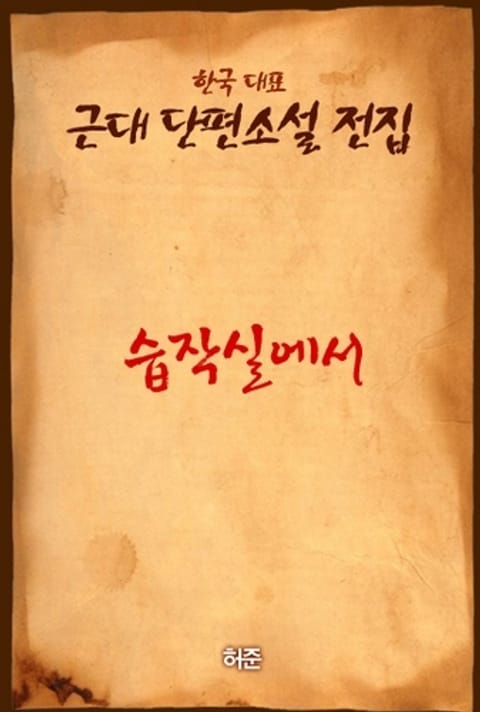 한국 대표
근대 단편소설 전집
습작실에서
허준